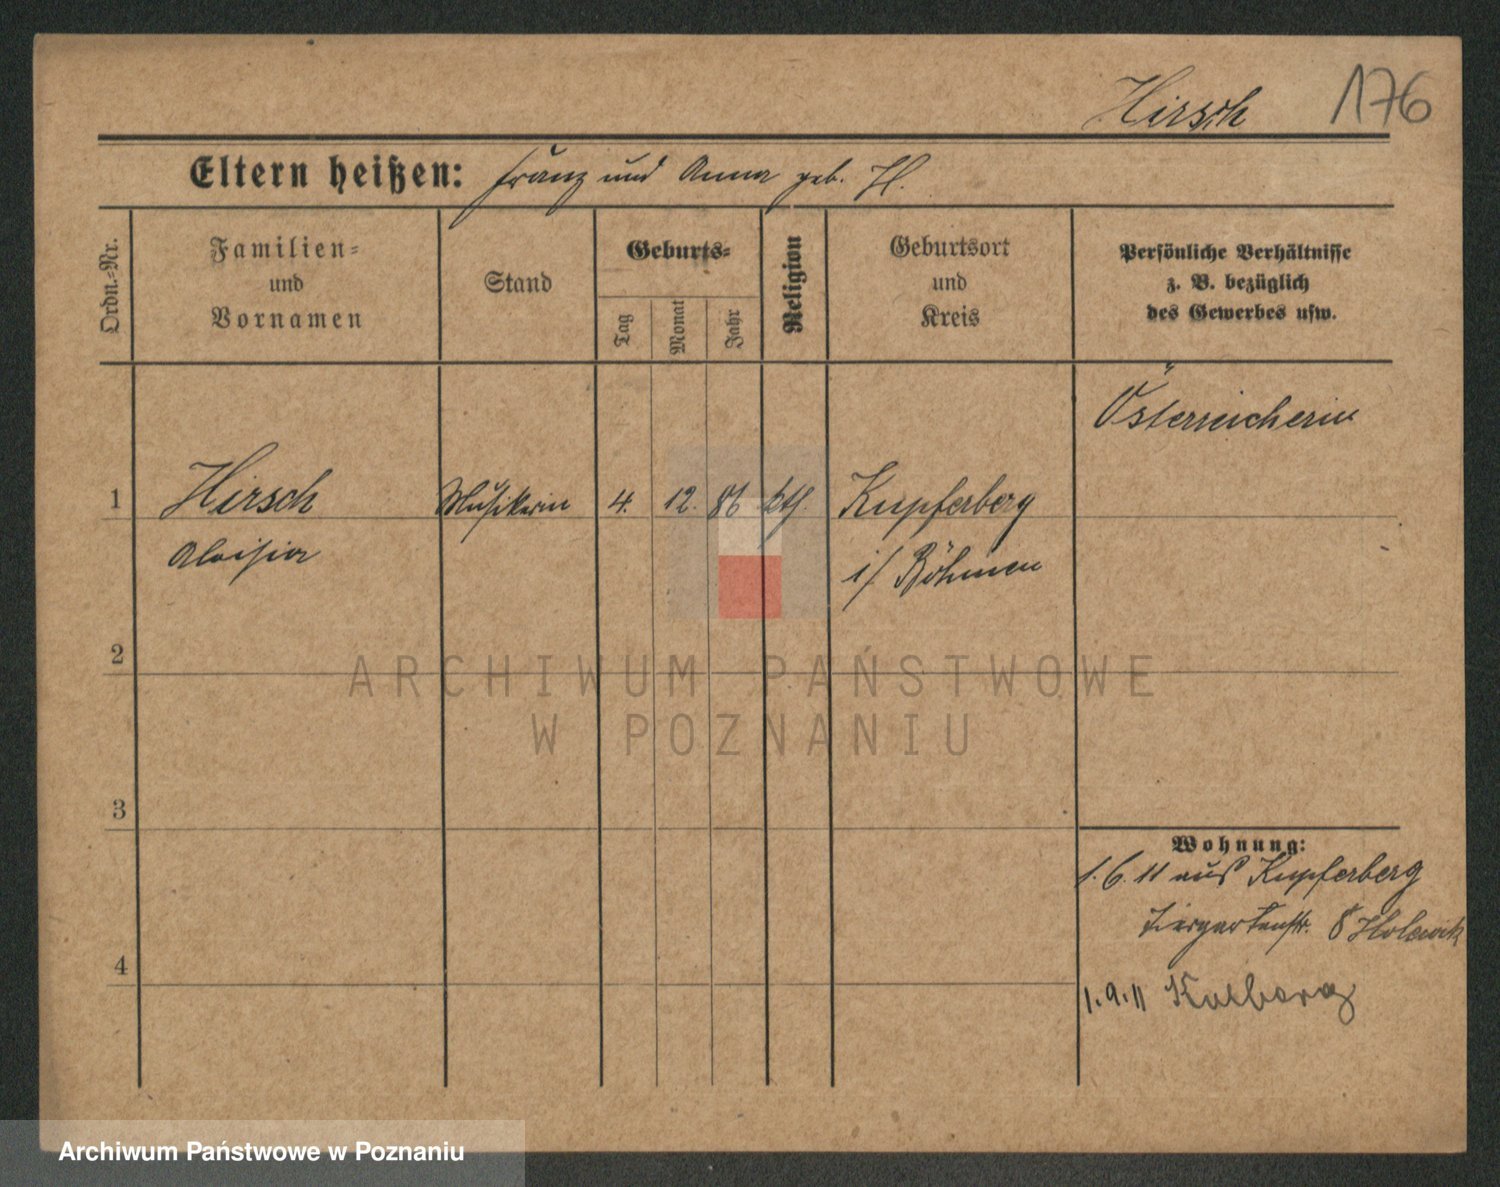 Hirsch 176
Eltern heißen: Franz und Anna geb. H.
Ordn.-Nr.
Familien-
und
Vornamen
Stand
Geburts-
Tag
Monat
Jahr
Religion
Geburtsort
und
Kreis
Persönliche Verhältnisse
z. B. bezüglich
des Gewerbes usw.
Österreicherin
1 Hirsch Musikerin 4. 12. 86 kth. Kupferberg
Aloisia i/ Böhmen
2
3
4
Wohnung:
1.6.11 aus Kupferberg
Tiergartenstr. 8
1.9.11 Kolberg
ARCHIWUM PAŃSTWOWE
W POZNANIU
Archiwum Państwowe w Poznaniu